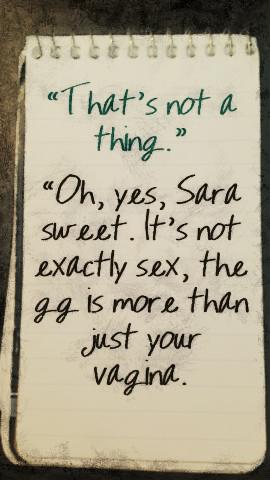 “That's not a
thing.”
“Oh, yes, Sara
sweet. It's not
exactly sex, the
gg is more than
just your
vagina.